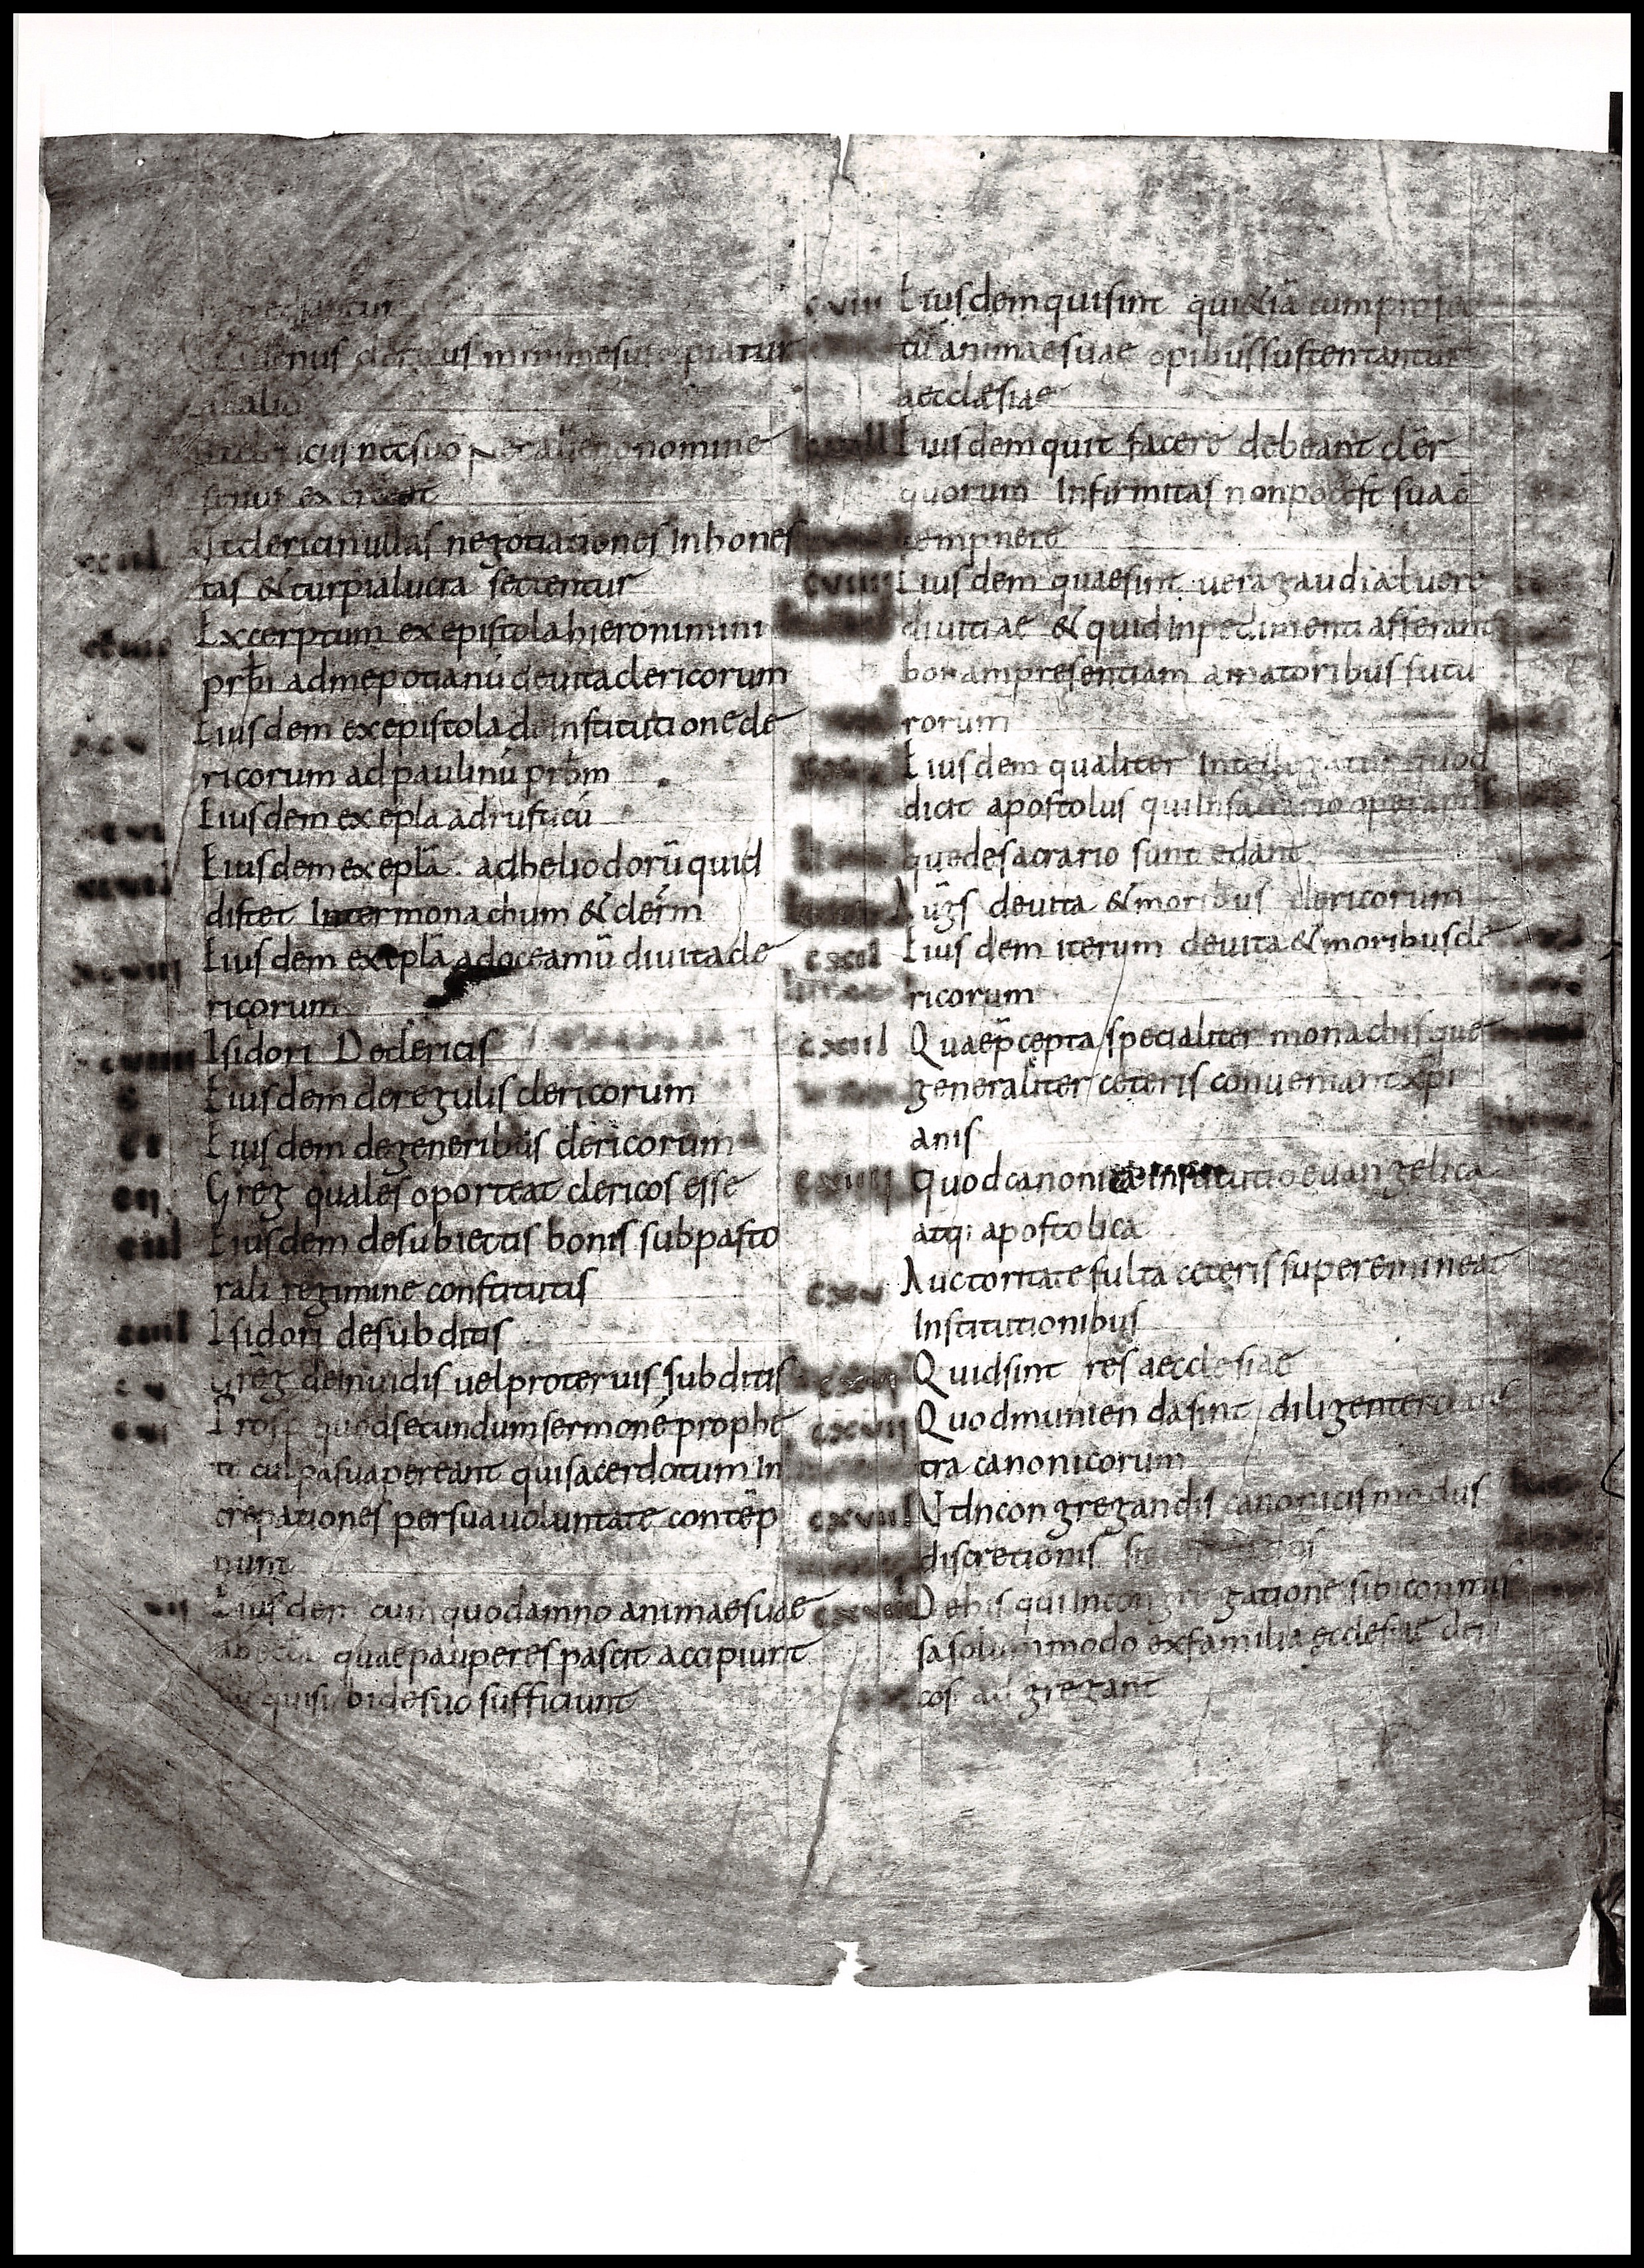 alienus clericus minime suscipiatur
ab alio
Ut clericus nec suo nec alieno nomine
fenus exerceat
Ut clerici nullas negotiationes Inhones
tas & turpia lucra sectentur
Excerptum ex epistola hieronimini
prbi ad mepotianū de uita clericorum
xcv Eiusdem ex epistola de Institutione cle
ricorum ad paulinū prbm
xcvi Eiusdem ex epla ad rusticū
xcvii Eiusdem ex eplā ad heliodorū quid
distet Inter monachum & clerm
xcviii Eiusdem ex eplā ad oceamū di uita cle
ricorum
xcviiii Isidori De clericis
c Eiusdem de regulis clericorum
ci Eiusdem de generibus clericorum
cii Greg quales oporteat clericos esse
ciii Eiusdem de subiectis bonis sub pasto
rali regimine constitutis
ciiii Isidori de subditis
cv Greg de inuidis uel proteruis subditis
cvi Prosp quod secundum sermonē prophe
ti culpa sua pereant qui sacerdotum In
crepationes per sua uoluntate contēp
nunt
Eiusdem cum quo damno animae suae
ab eccla quae pauperes pascit accipiunt
qui sibi de suo sufficiunt
cviii Eiusdem qui sint qui &iā cum
tū animae suae opibus sustentantur
aecclesiae
Eiusdem quit facere debeant cler
quorum Infirmitas non potest sua cō
tempnere
Eiusdem quae sint uera gaudia l uere
diuitiae & quid Inpedimenti afferant
bona mpresentiam amatoribus futu
rorum
Eiusdem qualiter Intellegatur quod
dicit apostolus qui In sacrario operant
que de sacrario sunt edant
Augs de uita & moribus clericorum
cxii Eiusdem iterum de uita & moribus cle
ricorum
cxiii Quae pcepta specialiter monachis que
generaliter ceteris conueniant xpi
anis
cxiiii quod canonica Institutio euangelica
atq; apostolica
cxv Auctoritate fulta ceteris superemineat
Institutionibus
cxvi Quid sint res aecclesiae
cxvii Quod munienda sint diligenter claus
tra canonicorum
cxviii Ut In congregandis canonicis modus
discretionis
De his qui In congregatione sibi commis
sa solummodo ex familia ecclesiae cleri
cos adgregant